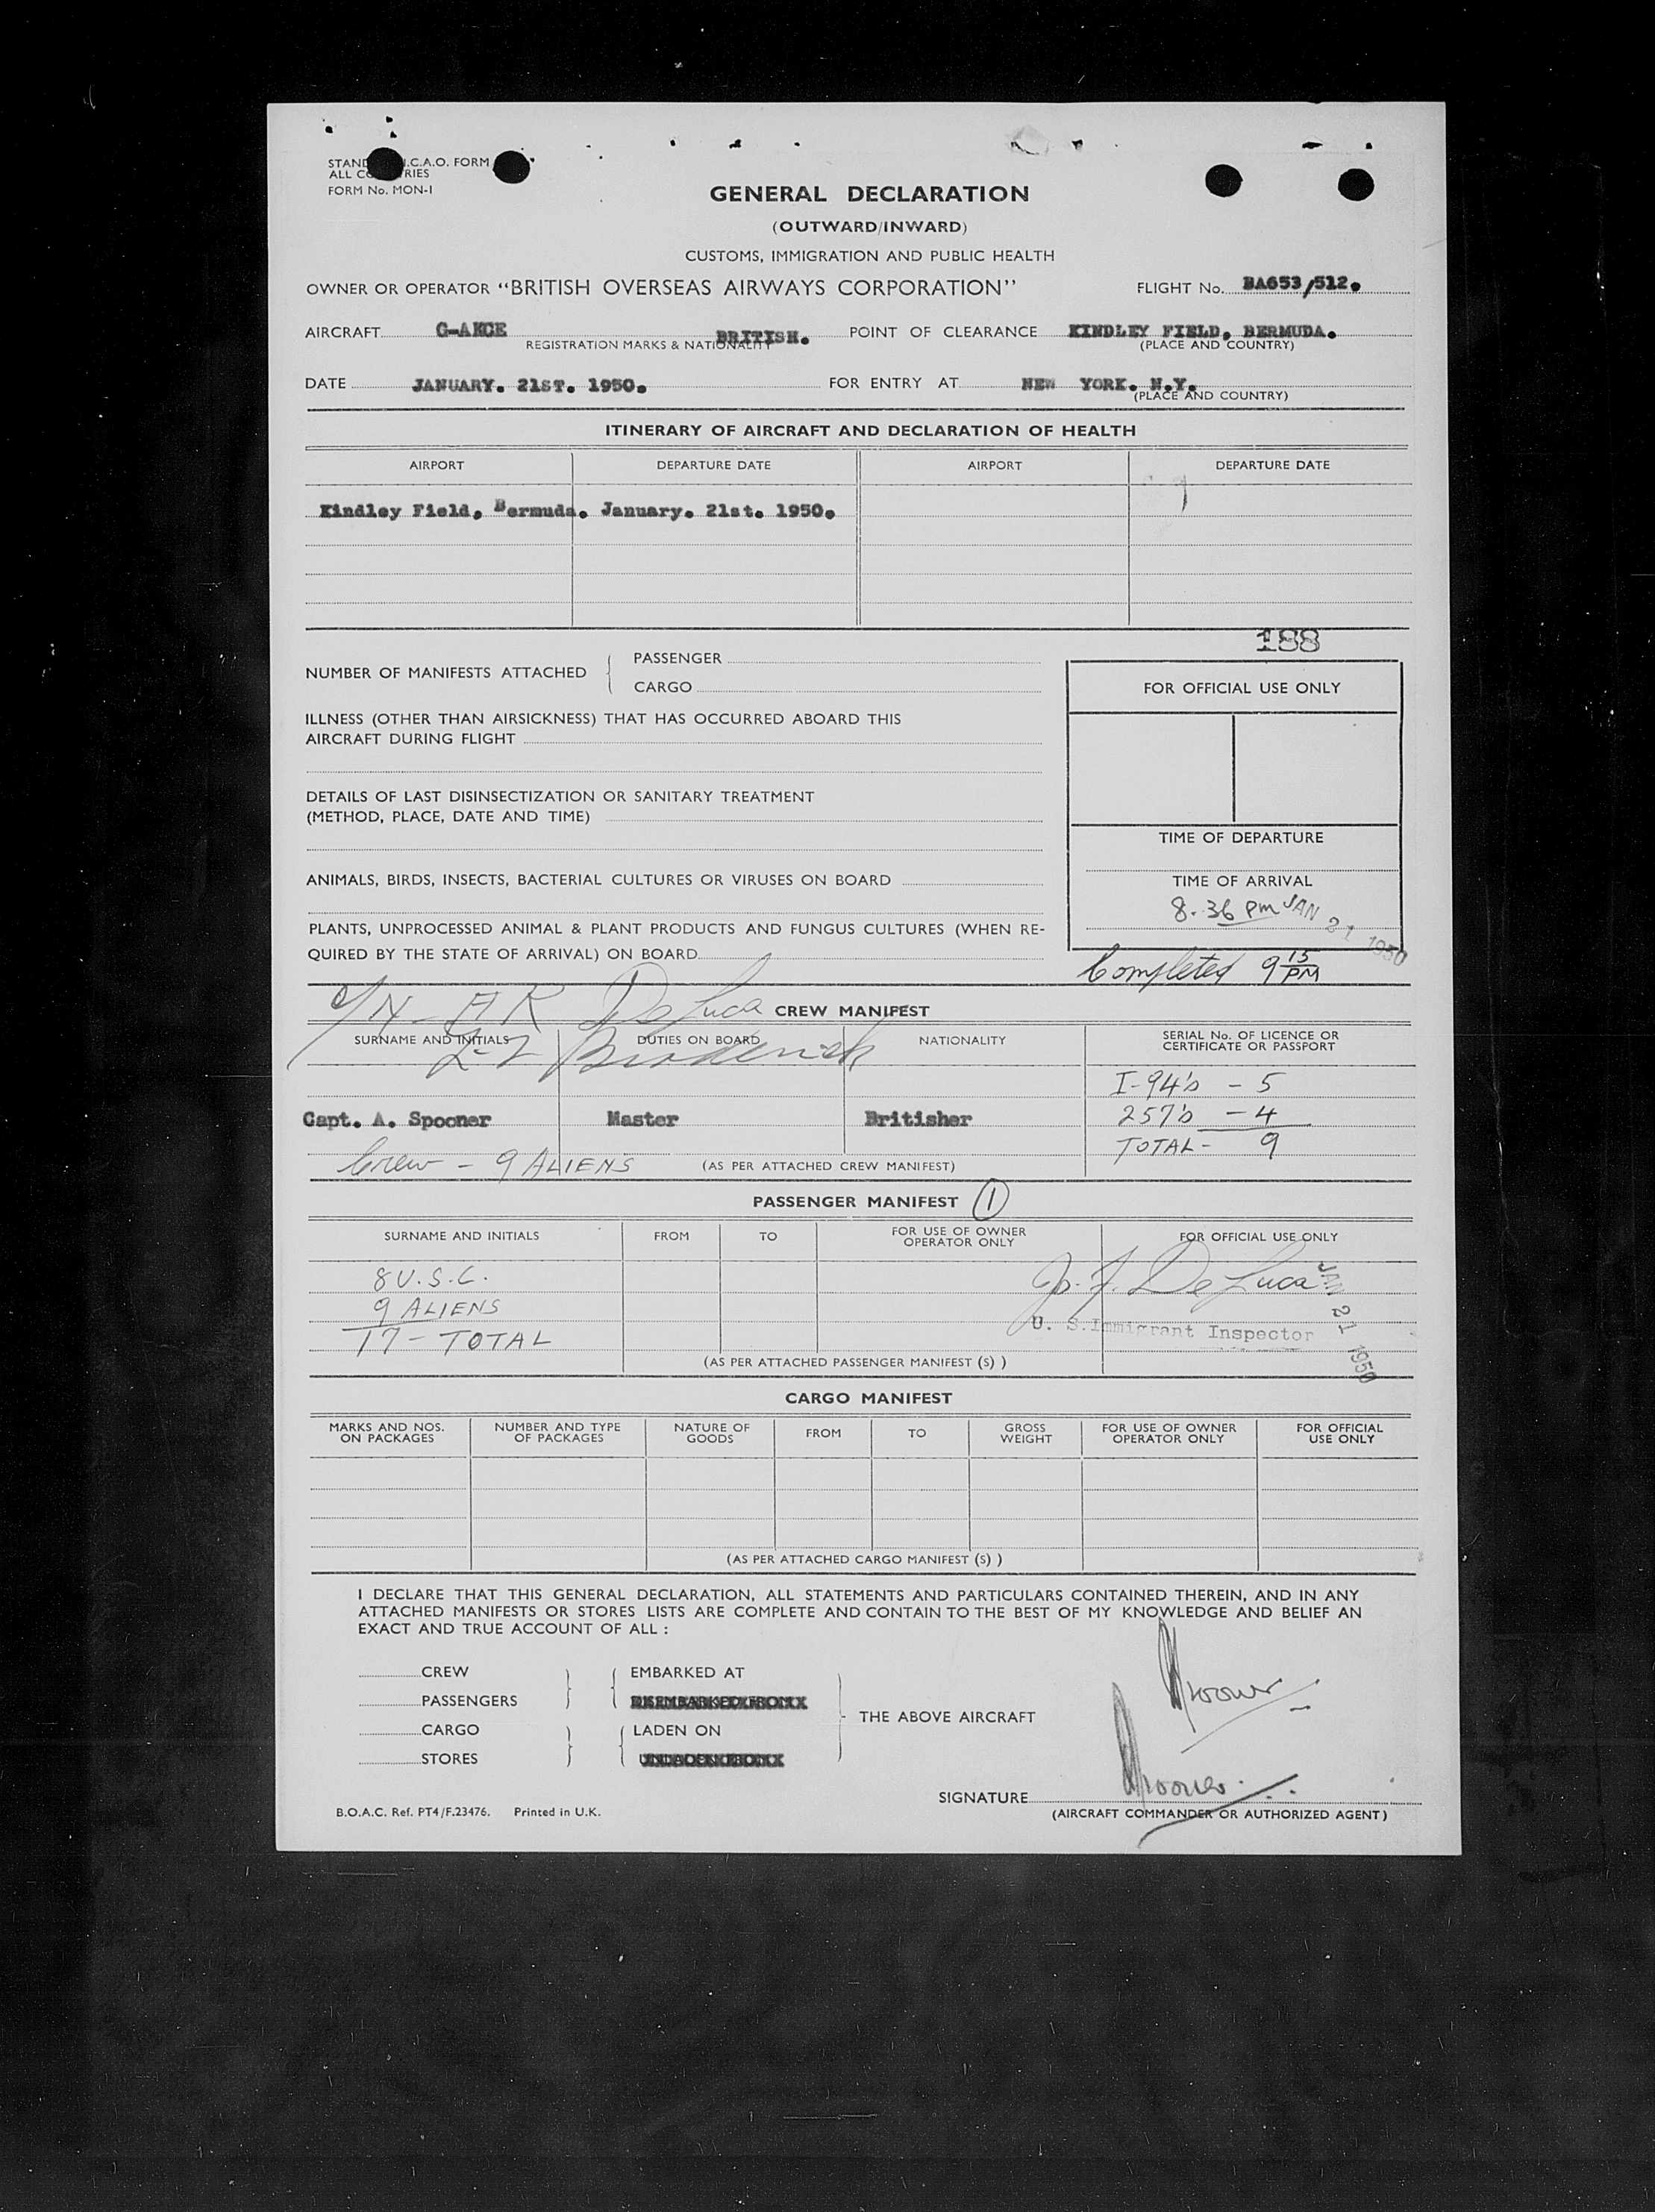 STAND I.C.A.O. FORM
ALL CO TRIES
FORM No. MON-1
GENERAL DECLARATION
(OUTWARD/INWARD)
CUSTOMS, IMMIGRATION AND PUBLIC HEALTH
OWNER OR OPERATOR "BRITISH OVERSEAS AIRWAYS CORPORATION" FLIGHT No. BA653/512.
AIRCRAFT G-AKCE BRITISH. POINT OF CLEARANCE KINDLEY FIELD, BERMUDA.
REGISTRATION MARKS & NATIONALITY (PLACE AND COUNTRY)
DATE JANUARY. 21ST. 1950. FOR ENTRY AT NEW YORK. N.Y.
(PLACE AND COUNTRY)
ITINERARY OF AIRCRAFT AND DECLARATION OF HEALTH
AIRPORT DEPARTURE DATE AIRPORT DEPARTURE DATE
Kindley Field, Bermuda. January. 21st. 1950.
188
NUMBER OF MANIFESTS ATTACHED PASSENGER
CARGO
FOR OFFICIAL USE ONLY
ILLNESS (OTHER THAN AIRSICKNESS) THAT HAS OCCURRED ABOARD THIS
AIRCRAFT DURING FLIGHT
DETAILS OF LAST DISINSECTIZATION OR SANITARY TREATMENT
(METHOD, PLACE, DATE AND TIME)
TIME OF DEPARTURE
ANIMALS, BIRDS, INSECTS, BACTERIAL CULTURES OR VIRUSES ON BOARD
TIME OF ARRIVAL
8.36 pm JAN 21 1950
PLANTS, UNPROCESSED ANIMAL & PLANT PRODUCTS AND FUNGUS CULTURES (WHEN RE-
QUIRED BY THE STATE OF ARRIVAL) ON BOARD
Completed 9 15 PM
De Luca
CREW MANIFEST
Broderick
SURNAME AND INITIALS DUTIES ON BOARD NATIONALITY SERIAL No. OF LICENCE OR
CERTIFICATE OR PASSPORT
I-94's - 5
Capt. A. Spooner Master Britisher 257's - 4
TOTAL - 9
Crew - 9 ALIENS (AS PER ATTACHED CREW MANIFEST)
PASSENGER MANIFEST 1
SURNAME AND INITIALS FROM TO FOR USE OF OWNER
OPERATOR ONLY FOR OFFICIAL USE ONLY
8 U.S.C.
9 ALIENS
17 - TOTAL
De Luca
U. S. Immigrant Inspector
JAN 21 1950
(AS PER ATTACHED PASSENGER MANIFEST (S) )
CARGO MANIFEST
MARKS AND NOS.
ON PACKAGES NUMBER AND TYPE
OF PACKAGES NATURE OF
GOODS FROM TO GROSS
WEIGHT FOR USE OF OWNER
OPERATOR ONLY FOR OFFICIAL
USE ONLY
(AS PER ATTACHED CARGO MANIFEST (S) )
I DECLARE THAT THIS GENERAL DECLARATION, ALL STATEMENTS AND PARTICULARS CONTAINED THEREIN, AND IN ANY
ATTACHED MANIFESTS OR STORES LISTS ARE COMPLETE AND CONTAIN TO THE BEST OF MY KNOWLEDGE AND BELIEF AN
EXACT AND TRUE ACCOUNT OF ALL :
CREW EMBARKED AT
PASSENGERS
THE ABOVE AIRCRAFT
CARGO LADEN ON
STORES
Spooner
Spooner
SIGNATURE
(AIRCRAFT COMMANDER OR AUTHORIZED AGENT)
B.O.A.C. Ref. PT4/F.23476. Printed in U.K.